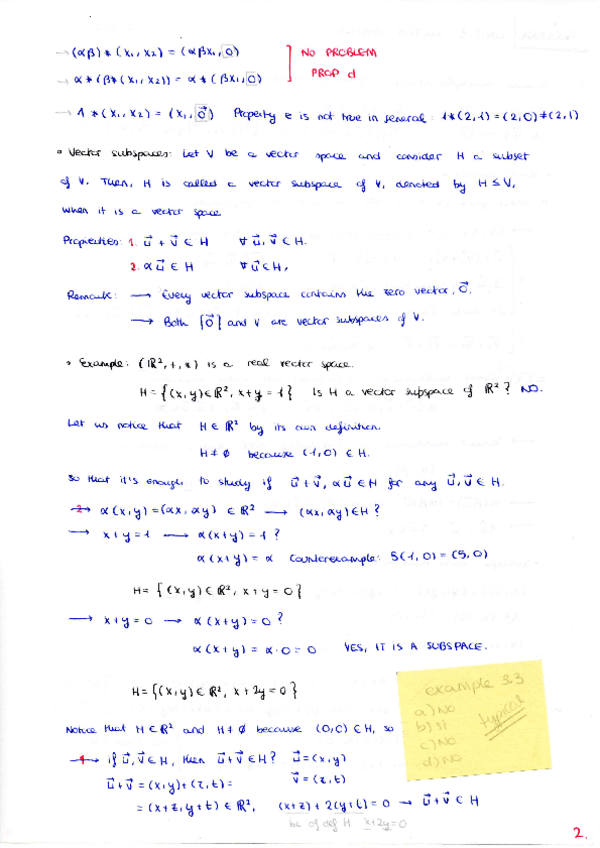 → (αβ) * (x₁, x₂) = (αβx₁, 0)
→ α * (β * (x₁, x₂)) = α * (βx₁, 0)
NO PROBLEM
PROP d
→ 1 * (x₁, x₂) = (x₁, 0⃗) Property e is not true in general: 1*(2,1) = (2,0) ≠ (2,1)
• Vector subspaces: Let V be a vector space and consider H a subset
of V. Then, H is called a vector subspace of V, denoted by H ≤ V,
when it is a vector space
Properties: 1. u⃗ + v⃗ ∈ H ∀ u⃗, v⃗ ∈ H.
2. α u⃗ ∈ H ∀ u⃗ ∈ H,
Remark: → Every vector subspace contains the zero vector, 0⃗.
→ Both {0⃗} and V are vector subspaces of V.
• Example: (ℝ², +, *) is a real vector space.
H = {(x,y) ∈ ℝ², x+y = 1} Is H a vector subspace of ℝ²? NO.
Let us notice that H ∈ ℝ² by its own definition.
H ≠ ∅ because (1,0) ∈ H.
So that it's enough to study if u⃗ + v⃗, α u⃗ ∈ H for any u⃗, v⃗ ∈ H.
2 → α(x,y) = (αx, αy) ∈ ℝ² → (αx, αy) ∈ H?
→ x+y = 1 → α(x+y) = 1?
α(x+y) = α Counterexample: 5(1,0) = (5,0)
H = {(x,y) ∈ ℝ², x+y = 0}
→ x+y = 0 → α(x+y) = 0?
α(x+y) = α·0 = 0 YES, IT IS A SUBSPACE.
H = {(x,y) ∈ ℝ², x+2y = 0}
Notice that H ∈ ℝ² and H ≠ ∅ because (0,0) ∈ H, so
1 → if u⃗, v⃗ ∈ H, then u⃗+v⃗ ∈ H? u⃗ = (x,y)
u⃗+v⃗ = (x,y)+(z,t) = v⃗ = (z,t)
= (x+z, y+t) ∈ ℝ², (x+z) + 2(y+t) = 0 → u⃗+v⃗ ∈ H
bc of def H x+2y=0
example 3.3
a) NO
b) SI
c) NO
d) NO
typical
2.